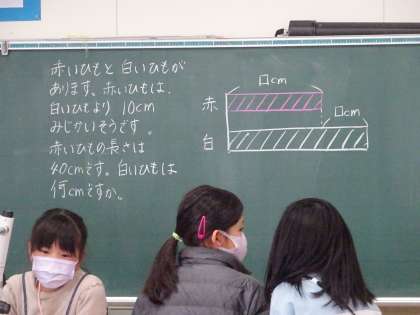 赤いひもと 白いひもが
あります。赤いひもは、
白いひもより 10cm
みじかいそうです。
赤いひもの長さは
40cmです。白いひもは
何cmですか。
□cm
赤
□cm
白